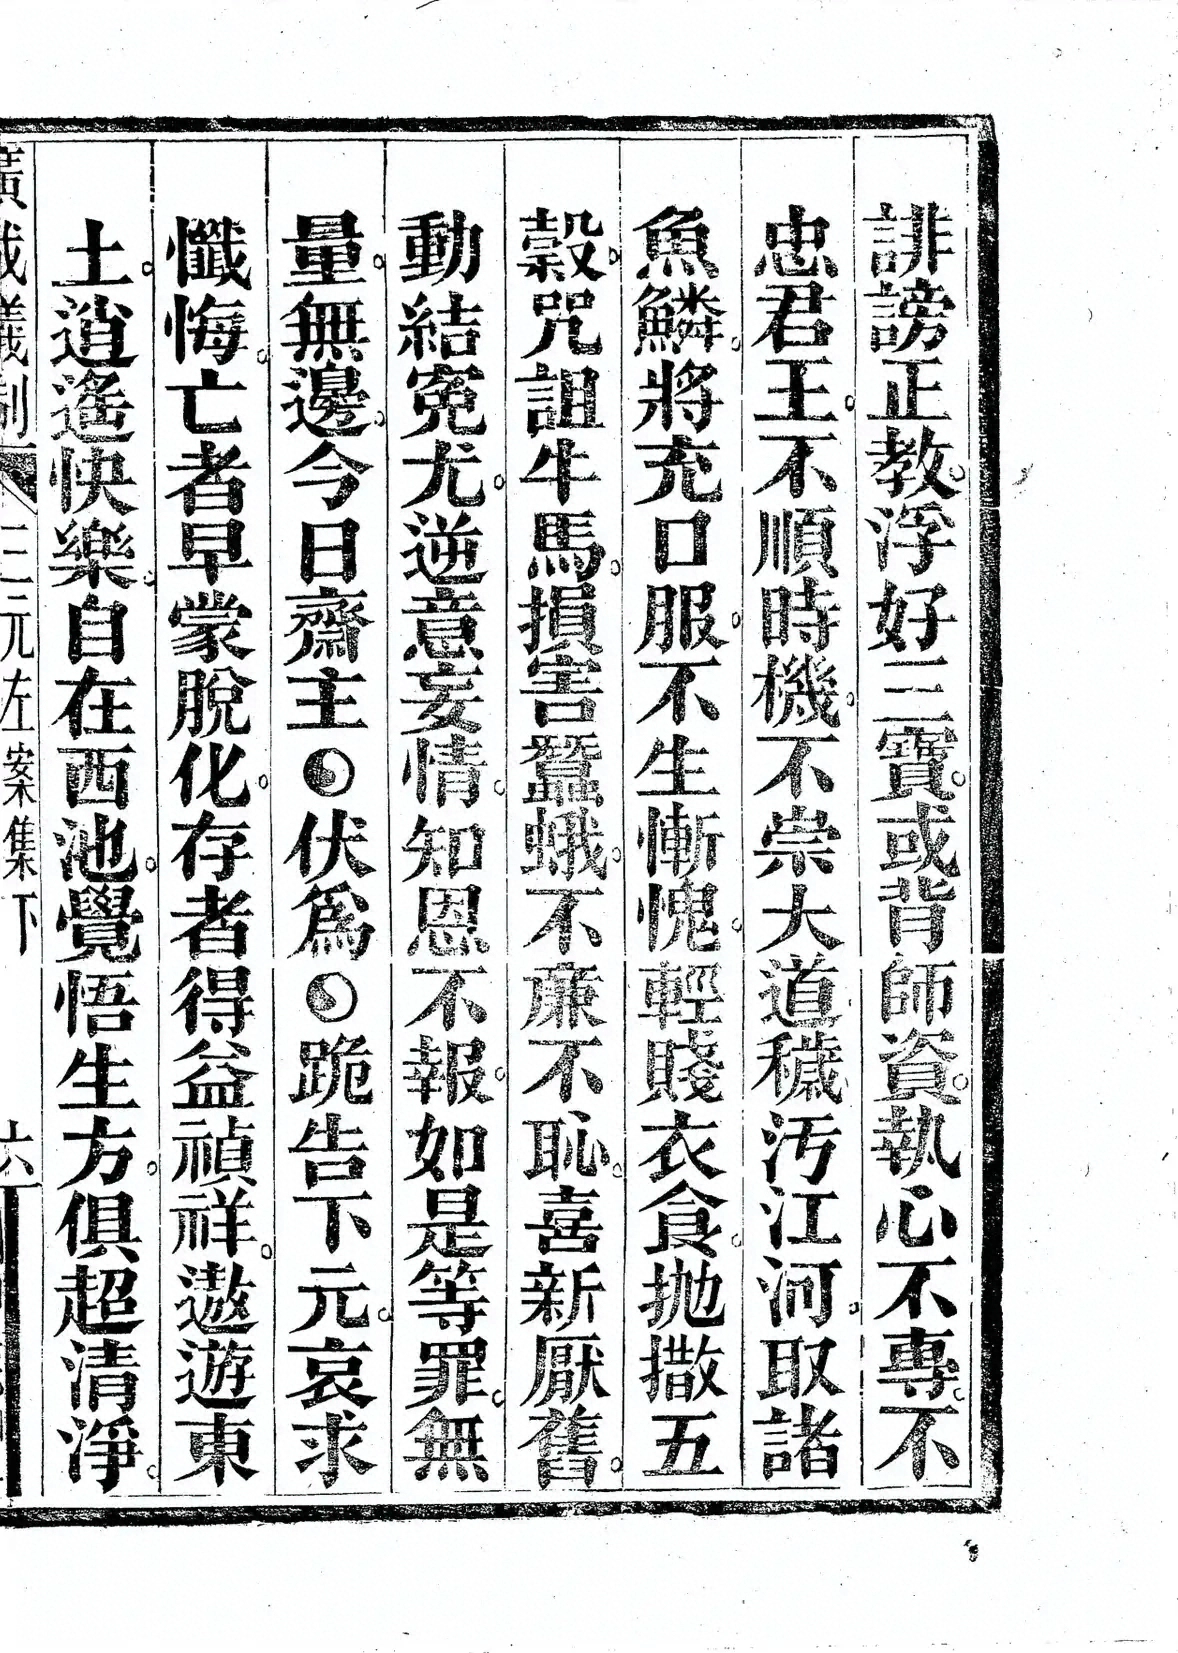 誹謗正教。浮好三寶。或背師資。執心不專。不
忠君王。不順時機。不崇大道。穢汚江河。取諸
魚鱗。將充口服。不生慚愧。輕賤衣食。抛撒五
穀。咒詛牛馬。損害蠶蛾。不廉不恥。喜新厭舊。
動結寃尤。逆意妄情。知恩不報。如是等罪。無
量無邊。今日齋主☯伏爲☯跪告下元。哀求
懺悔。亡者早蒙脫化。存者得益禎祥。遨遊東
土。逍遙快樂。自在西池。覺悟生方。俱超清淨。
廣成儀制 三元左案集下 六